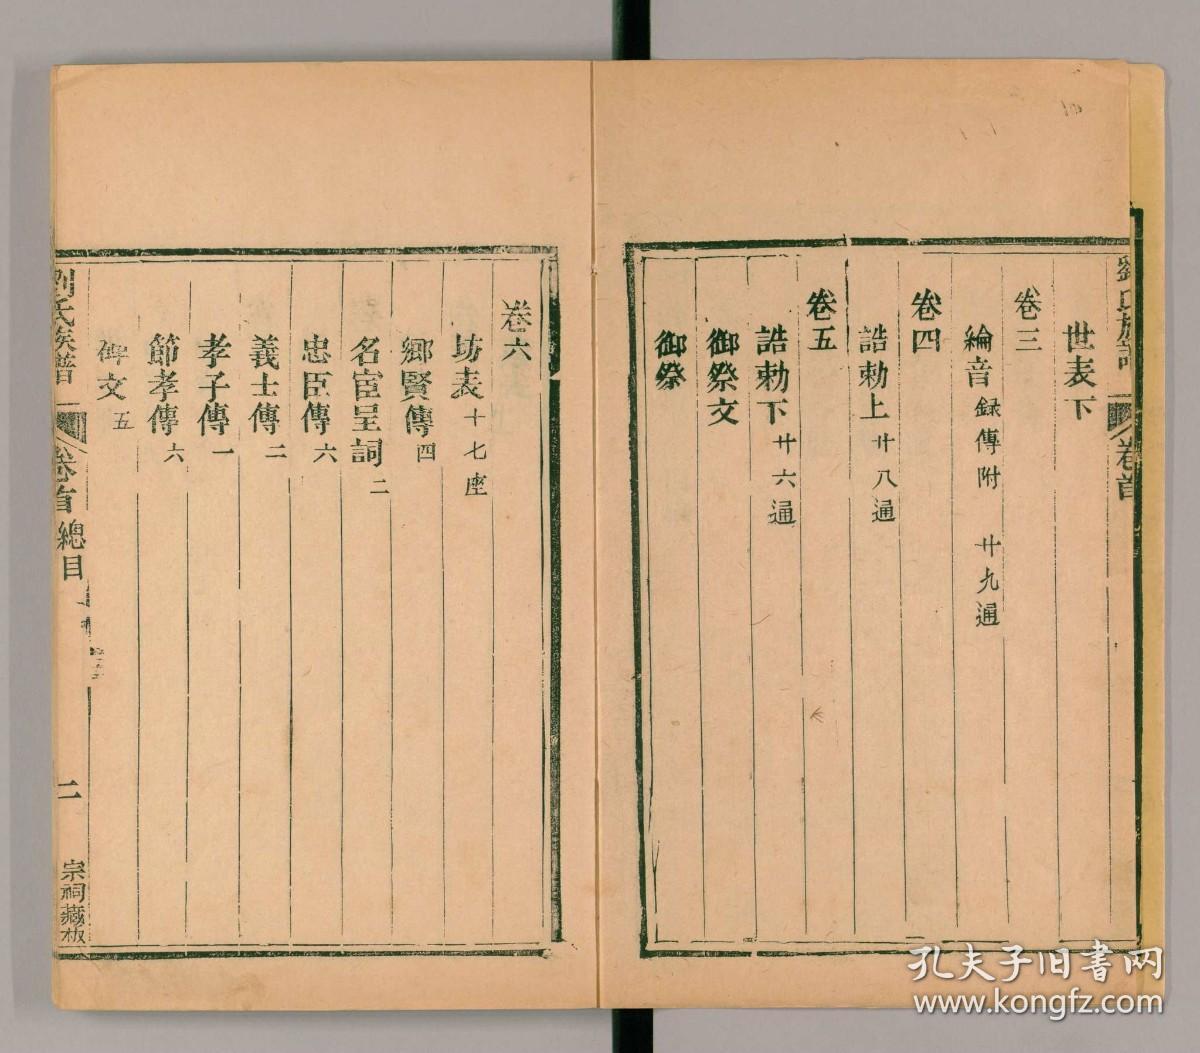 劉氏族譜 卷首
世表下
卷三
綸音 録傳附 廾九通
卷四
誥勅上 廾八通
卷五
誥勅下 廾六通
御祭文
御祭
卷六
坊表 十七座
鄉賢傳 四
名宦呈詞 二
忠臣傳 六
義士傳 二
孝子傳 一
節孝傳 六
碑文 五
劉氏族譜 卷首 總目 二 宗祠藏板
孔夫子旧书网
www.kongfz.com